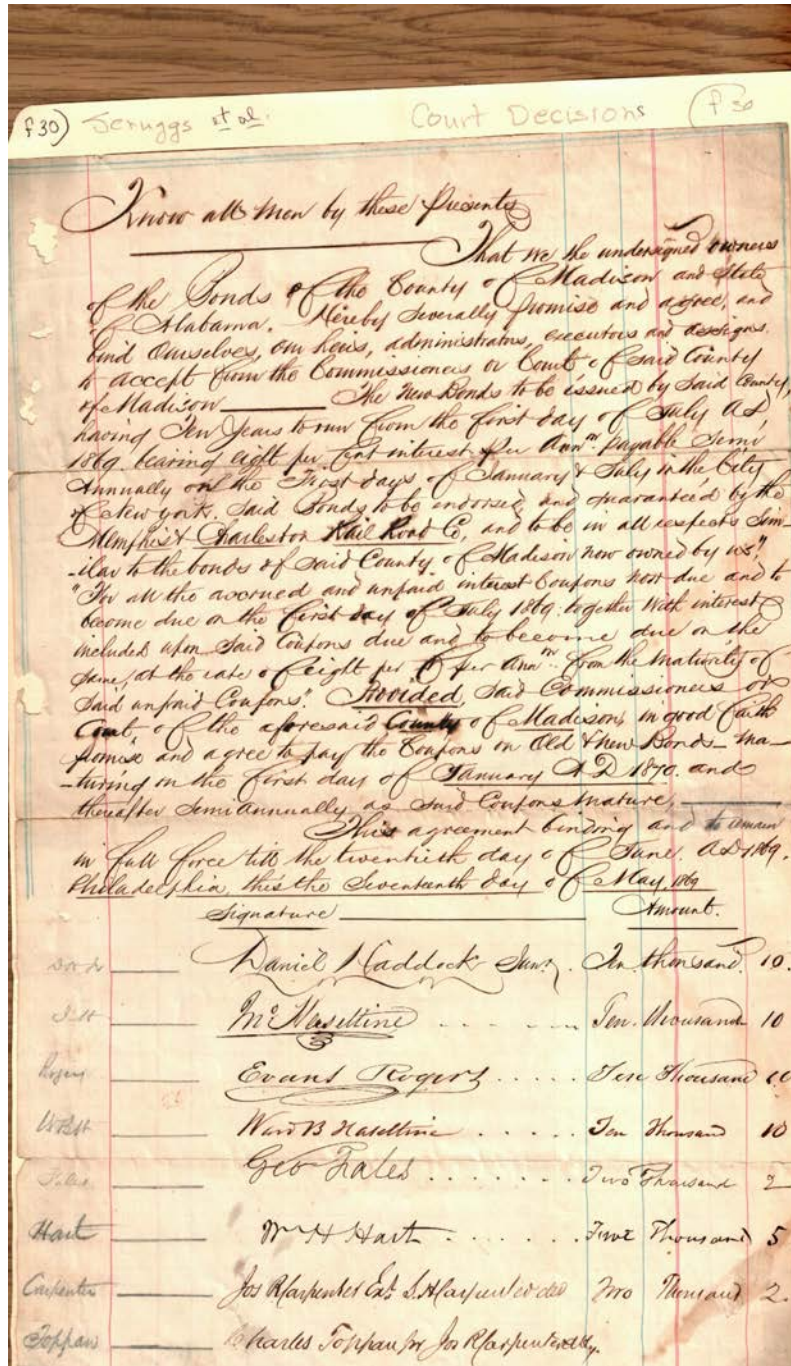 f 30) Scruggs et al. Court Decisions (f 30
Know all men by these Presents
That we the undersigned owners
of the Bonds of the County of Madison and State
of Alabama. Hereby Severally promise and agree, and
bind Ourselves, our heirs, administrators, executors and assigns.
to accept from the Commissioners or Court of said County
of Madison The New Bonds to be issued by said County,
having Ten Years to run from the first day of July AD,
1869. bearing eight per Cent interest Per Ann.m payable Semi
Annually on the First days of January & July in the City
of New York. Said Bonds to be endorsed and guaranteed by the
Memphis & Charleston Rail Road Co, and to be in all respects Sim-
-ilar to the bonds of said County of Madison now owned by us".
"For all the accrued and unpaid interest Coupons now due and to
become due on the first day of July 1869. together with interest
included upon said Coupons due and to become due on the
same, at the rate of eight per Ct per Ann.m from the maturity of
said unpaid Coupons". Provided, said Commissioners or
Court of the aforesaid County of Madison, in good faith
promise and agree to pay the Coupons on Old & New Bonds - ma-
-turing on the first day of January A D 1870. and
thereafter Semi Annually as said Coupons mature,
This agreement binding and to remain
in full force till the twentieth day of June. AD 1869.
Philadelphia, this the Seventeenth day of May. 1869
Signature Amount.
Daniel Haddock Junr. Ten thousand. 10.
J.H Mc Haseltine Ten. thousand 10
Rogers Evans Rogers Ten Thousand 10
WBH Ward B Haseltine Ten Thousand 10
Fales Geo Fales Two Thousand 2
Hart Wm H Hart Five Thousand 5
Carpenter Jos R Carpenter Exr S. H Carpenter decd Two Thousand 2.
Toppan Charles Toppan pr Jos R Carpenter Atty.